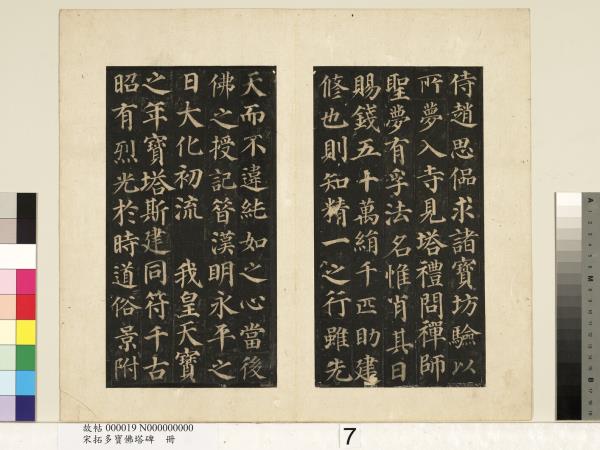 侍趙思偘求諸寶坊驗以
所夢入寺見塔禮問禪師
聖夢有孚法名惟肖其日
賜錢五十萬絹千匹助建
修也則知精一之行雖先
天而不違純如之心當後
佛之授記昔漢明永平之
日大化初流 我皇天寶
之年寶塔斯建同符千古
昭有烈光於時道俗景附
故帖 000019 N000000000
宋拓多寶佛塔碑 冊
7